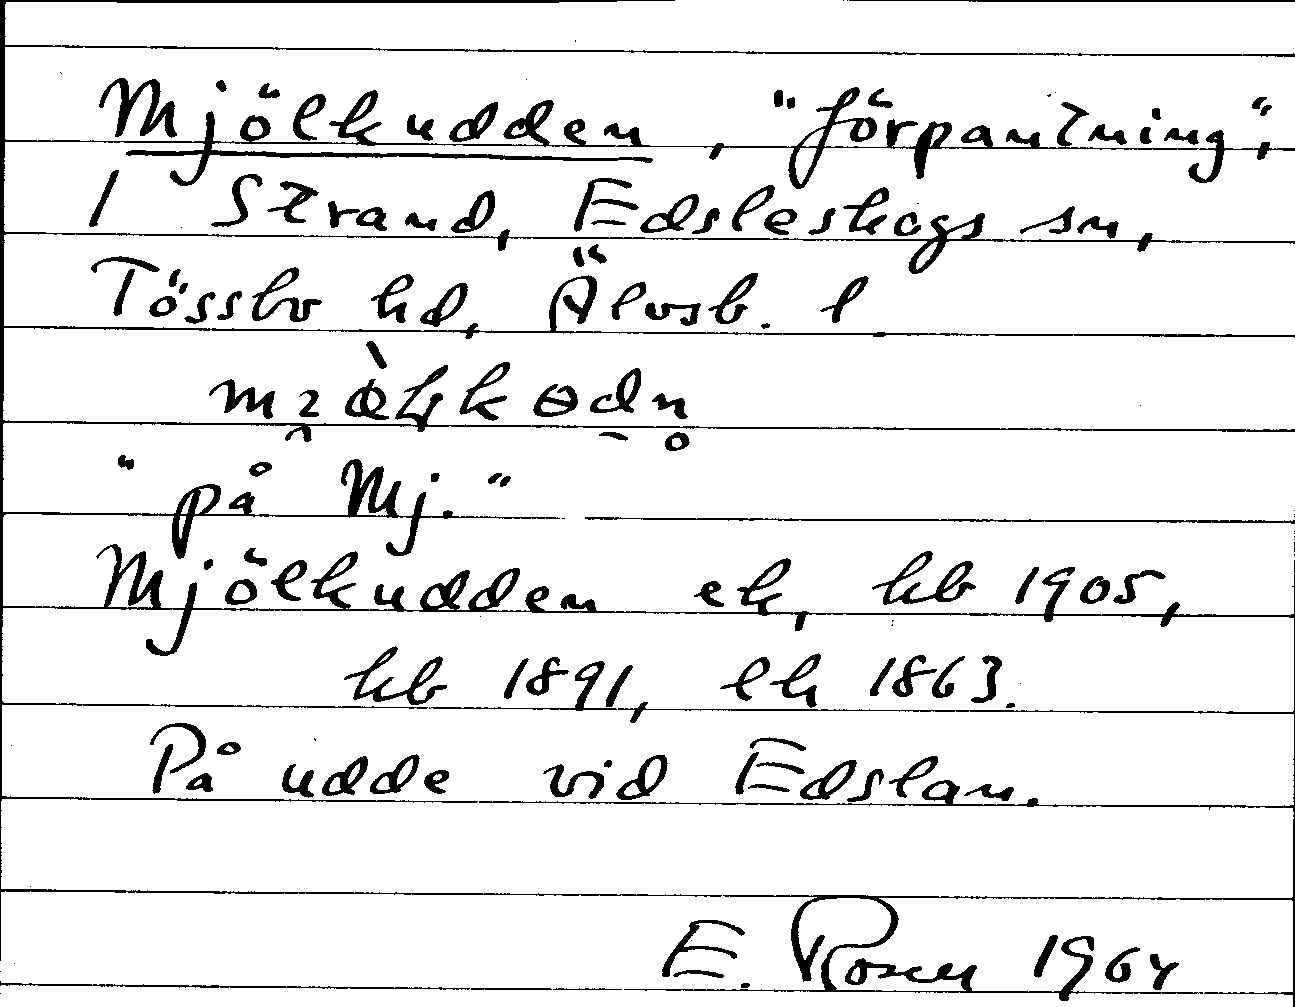 Mjölkudden, "förpantning",
1 Strand, Edsleskogs sn,
Tössbo hd, Älvsb. l.
"på Mj."
Mjölkudden ek, kb 1905,
kb 1891, ek 1863.
På udde vid Edslan.
E. Rosen 1964